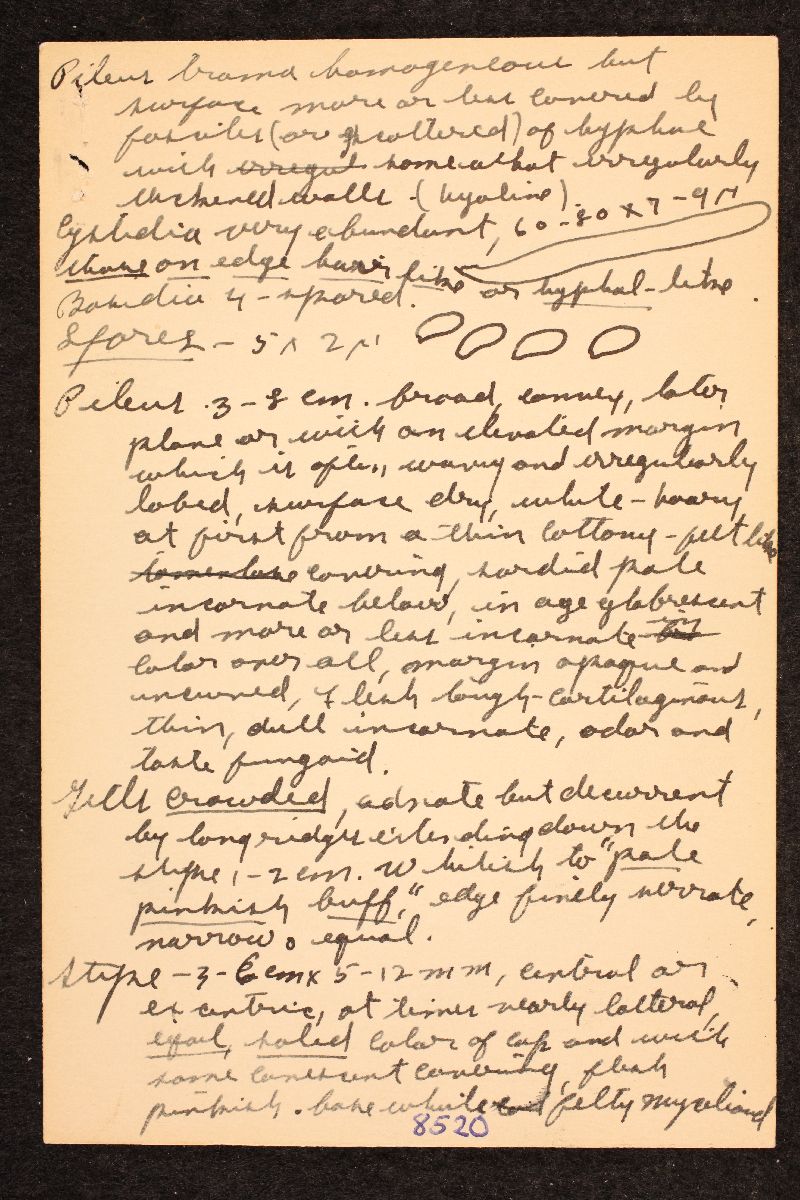 Pileus trama homogeneous but
surface more or less covered by
fascicles (or scattered) of hyphae
with irregul somewhat irregularly
thickened walls. (hyaline)
Cystidia very abundant, 60-80 x 7-9 μ
those on edge hair like or hyphal-like.
Basidia 4-spored.
Spores - 5 x 2 μ
Pileus 3-8 cm. broad, convex, later
plane or with an elevated margin
which is often wavy and irregularly
lobed, surface dry, white-hoary
at first from a thin cottony-felt like
tomentose covering, sordid pale
incarnate below, in age glabrescent
and more or less incarnate tin
color over all, margin opaque and
incurved, flesh tough-cartilaginous,
thin, dull incarnate, odor and
taste fungoid.
Gills crowded, adnate but decurrent
by long ridges extending down the
stipe 1-2 cm. Whitish to "pale
pinkish buff," edge finely serrate,
narrow, equal.
Stipe - 3-6 cm x 5-12 mm, central or
excentric, at times nearly lateral,
equal, solid color of cap and with
some canescent covering, flesh
pinkish. base white felty mycelioid
8520